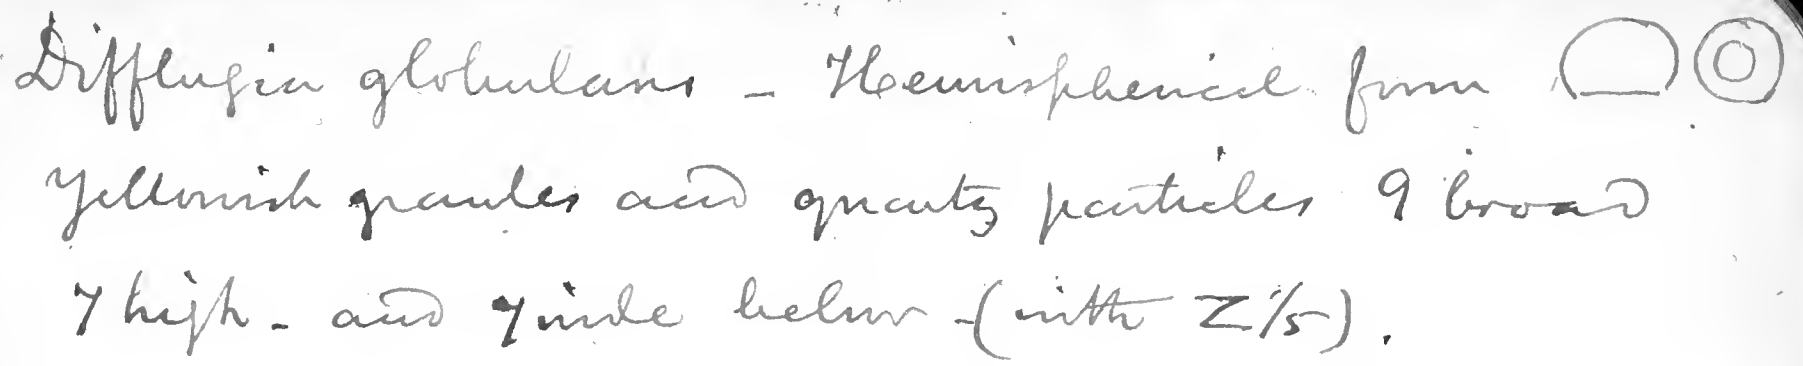 Difflugia globularis - Hemispherical form
Yellowish granules and quartz particles 9 broad
7 high - and 7 wide below - (with Z 1/5).